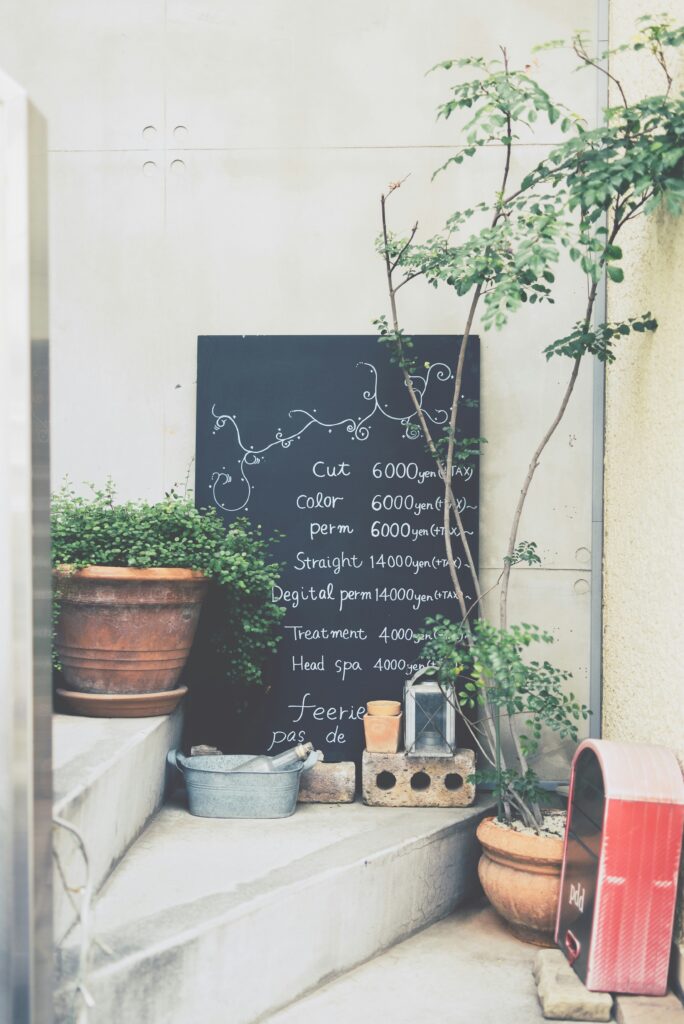 Cut 6000yen(+TAX)
color 6000yen(+TAX)~
perm 6000yen(+TAX)~
Straight 14000yen(+TAX)~
Degital perm 14000yen(+TAX)~
Treatment 4000yen
Head spa 4000yen
feerie
pas de
pdd